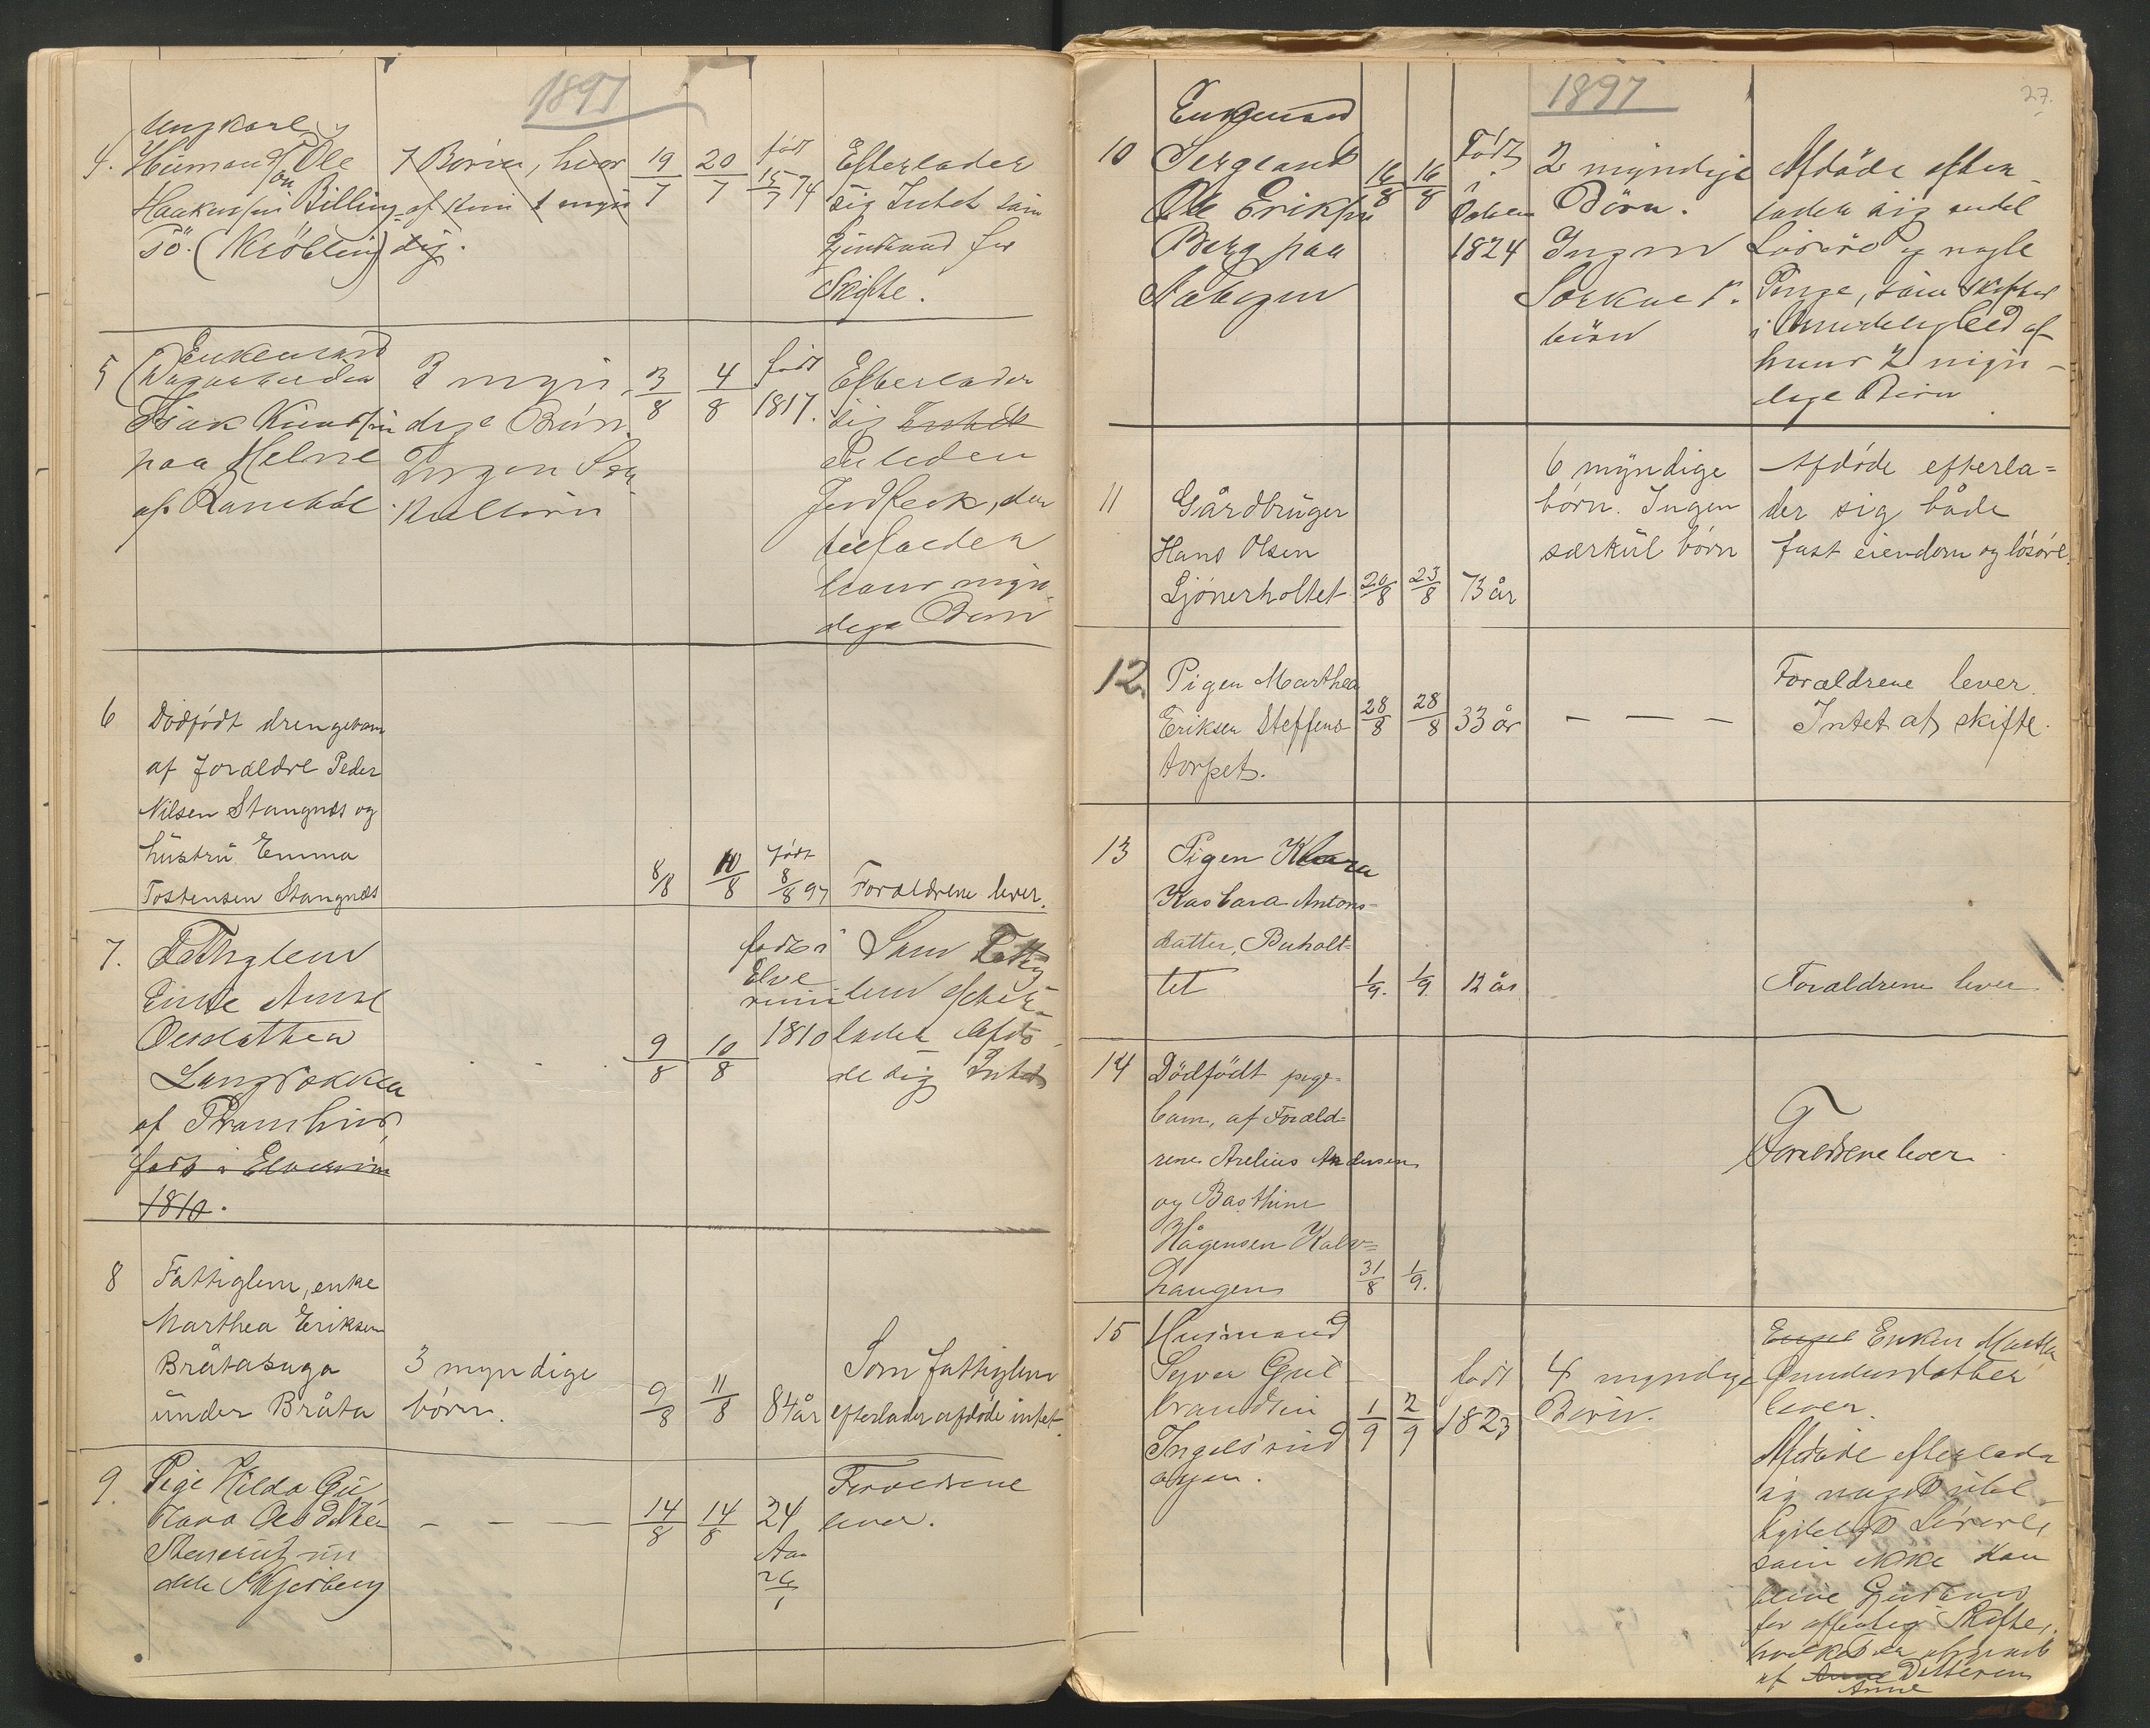 1897
4. Ungkarl
Ole
Haakensen Billing
19/7 20/7 født 15/7 74
Efterlader
sig Intet som
Gjenstand for
Skifte.
5 Enkemand
Isak
paa
3 myn
dige Børn
Ingen Sær
kulbörn
3/8 4/8 født
1817.
Efterlader
sig
Jordflek, der
tilfalder
hans myn-
dige Børn
6 Dödfödt drengebarn
af forældre Peder
Nilsen Stangnæs og
hüstrü Emma
Tostensen Stangnæs
8/8 10/8 født 8/8 97
Forældrene lever.
7. Fattiglem
Enke Anne
Langbakken
af
født i Elverum
1810.
9/8 10/8
født i
Elve
rum
1810
Som Fattig
lem efter-
lader Afdö-
de sig Intet
8 Fattiglem, enke
Marthea Eriksen
Bråtastuga
ünder Bråta
3 myndige
börn.
9/8 11/8 84 år
Som fattiglem
efterlader afdöde intet.
9. Pige Hilda Gu
stava
un
der Skjerberg
— — —
14/8 14/8 24
Aar
Forældrene
lever.
1897
27.
10 Enkemand
Sergeant
Ole Eriksen
Berg paa
16/8 16/8
Födt
1824
2 myndige
Börn.
Ingen
Særkul
börn
Afdöde efter-
lader sig endel
Lösöre og nogle
Penge, som skiftes
i Mindelighed af
hans 2 myn-
dige Börn
11 Gårdbrüger
Hans Olsen
Sjönerholtet
20/8 23/8 73 år
6 myndige
börn. Ingen
særkül börn
Afdöde efterla=
der sig både
fast eiendom og lösöre.
12. Pigen Marthea
Eriksen Steffens
torpet.
28/8 28/8 33 år
— — —
Forældrene lever.
Intet at skifte.
13 Pigen Klara
Kasbara Antons=
datter, Buholt=
tet
1/9. 1/9 12 år
Forældrene lever
14 Dödfödt pige=
barn, af Foræld=
rene Arelius Andersen
og Basthine
Hågensen Kalv=
haugen
31/8 1/9.
Forældrene lever
15 Husmand
Syver Gul
brandsen
Ingelsrud
1/9 2/9
født
1823
4 myndige
Börn.
Enken Martha
Gundersdatter
lever.
Afdöde efterlader
sig noget ube-
tydeligt Lösöre,
som ikke kan
blive Gjenstand
for offentlig Skifte,
af Anne Datteren
Anne